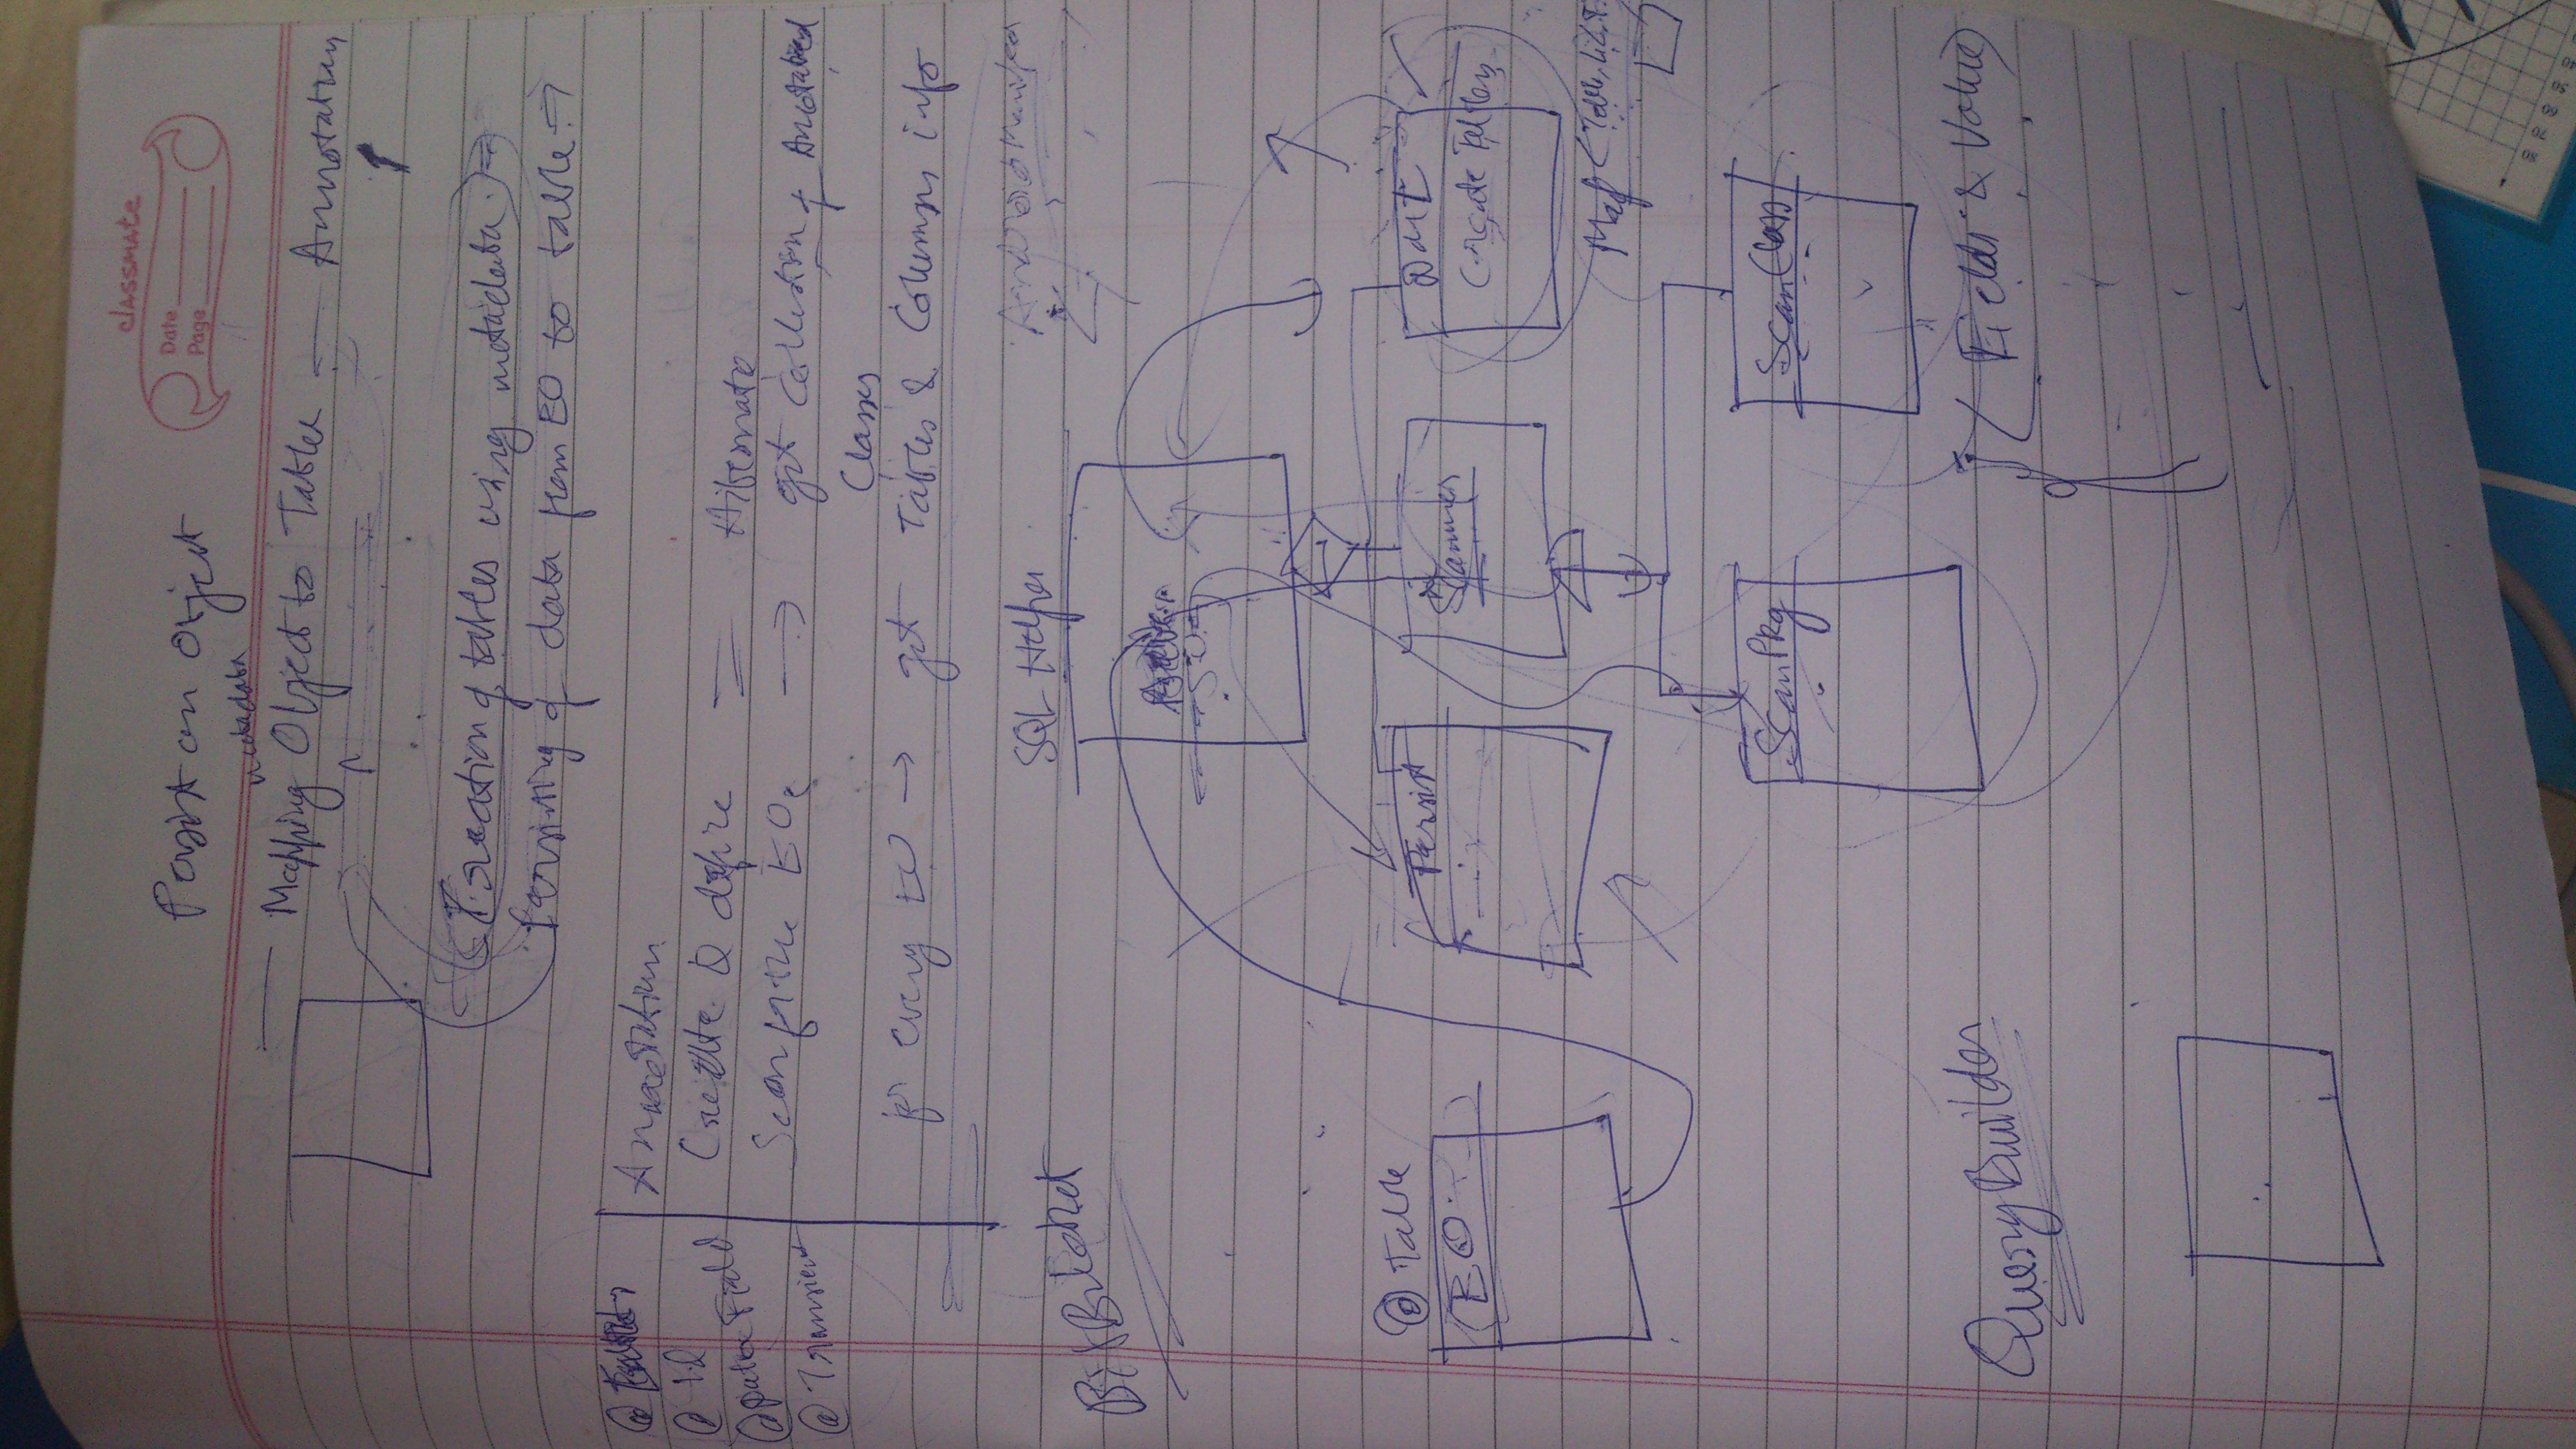 classmate
Date
Page
Persist an Object
metadata
Mapping Object to Tables — Annotation
Creation of tables using metadata
Persisting of data from EO to table →
@ Entity
@ Id
@ Field
@ Transient
Annotation
Create & define = Hibernate
Scan for the EOs → get Collection of Annotated
Classes
for every EO → get Tables & Columns info
BitBucket
SQL Helper
AndroidManifest
@ Table
EO
Persist
Scanner
Create Tables
Map <Table, List
ScanPkg
ScanClass
QueryBuilder
(Fields & Value)